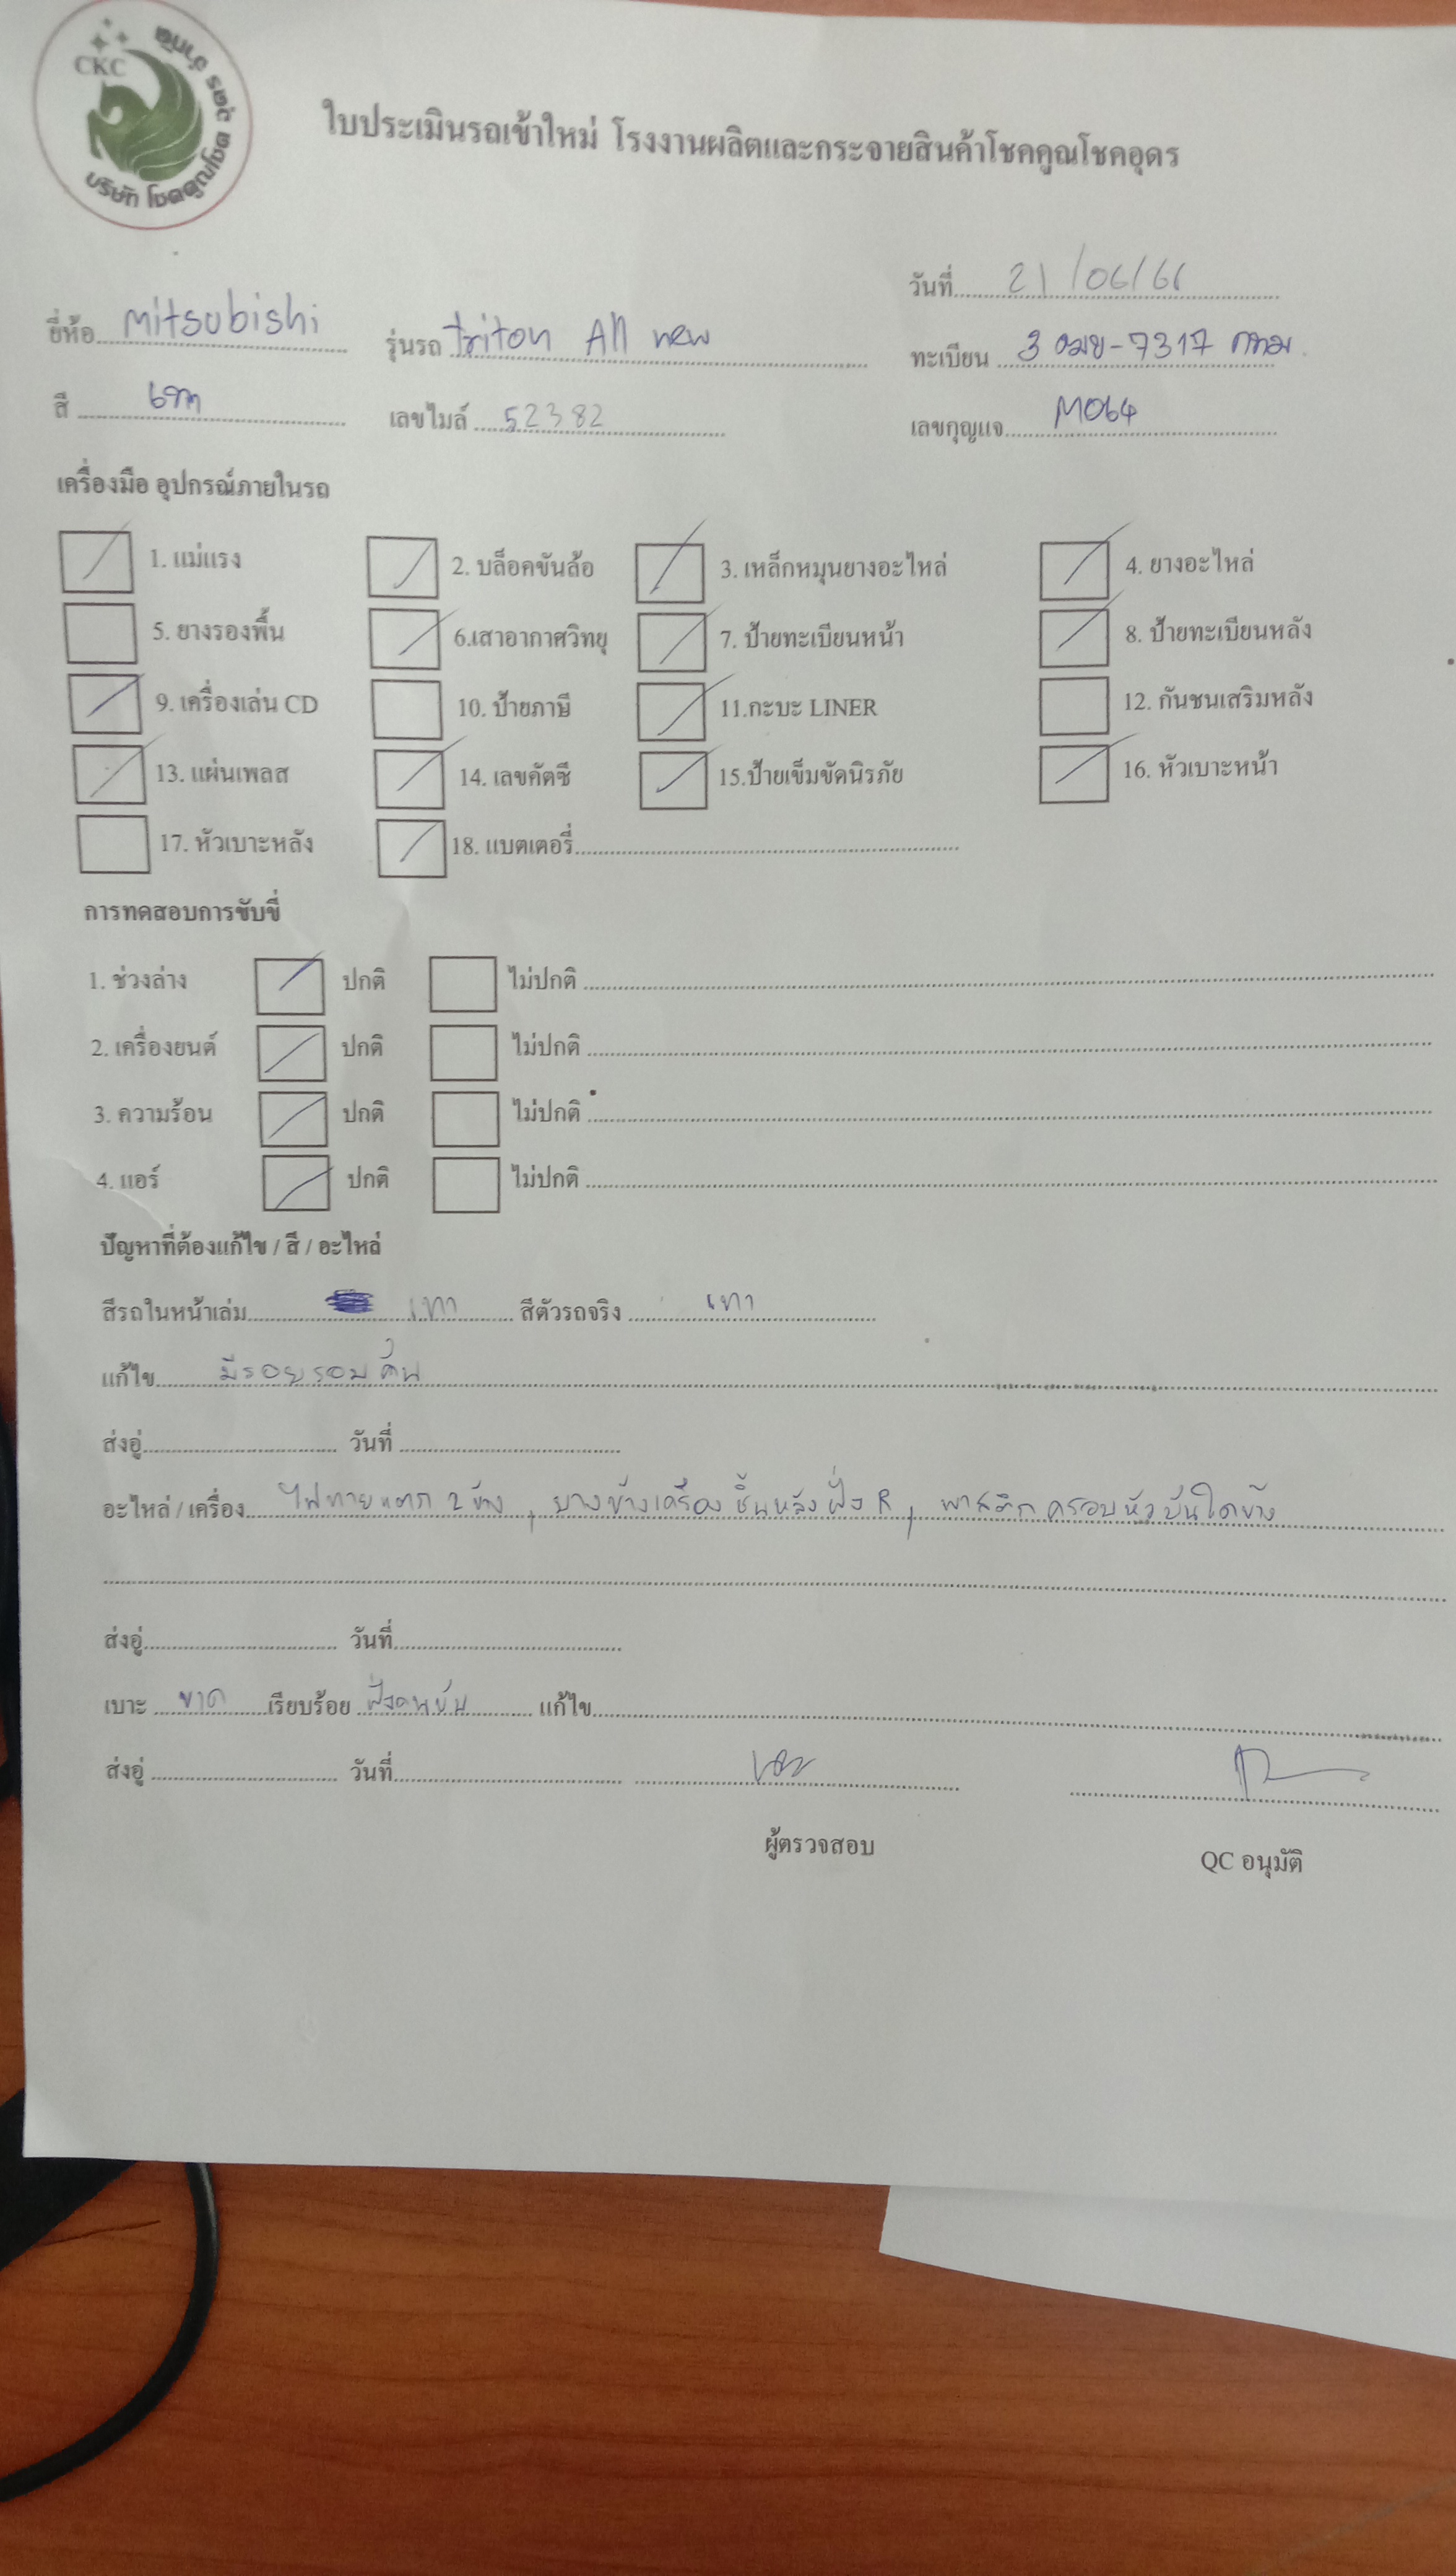 CKC
บริษัท โชคคูณโชค อุดร จำกัด
ใบประเมินรถเข้าใหม่ โรงงานผลิตและกระจายสินค้าโชคคูณโชคอุดร
วันที่ 21/06/66
ยี่ห้อ Mitsubishi รุ่นรถ Triton All new ทะเบียน 3 ฒฆ-7317 กทม.
สี เทา เลขไมล์ 52382 เลขกุญแจ M064
เครื่องมือ อุปกรณ์ภายในรถ
1. แม่แรง 2. บล็อคขันล้อ 3. เหล็กหมุนยางอะไหล่ 4. ยางอะไหล่
5. ยางรองพื้น 6.เสาอากาศวิทยุ 7. ป้ายทะเบียนหน้า 8. ป้ายทะเบียนหลัง
9. เครื่องเล่น CD 10. ป้ายภาษี 11.กะบะ LINER 12. กันชนเสริมหลัง
13. แผ่นเพลส 14. เลขคัตซี 15.ป้ายเข็มขัดนิรภัย 16. หัวเบาะหน้า
17. หัวเบาะหลัง 18. แบตเตอรี่
การทดสอบการขับขี่
1. ช่วงล่าง ปกติ ไม่ปกติ
2. เครื่องยนต์ ปกติ ไม่ปกติ
3. ความร้อน ปกติ ไม่ปกติ
4. แอร์ ปกติ ไม่ปกติ
ปัญหาที่ต้องแก้ไข / สี / อะไหล่
สีรถในหน้าเล่ม เทา สีตัวรถจริง เทา
แก้ไข มีรอยรอบคัน
ส่งอู่ วันที่
อะไหล่ / เครื่อง ไฟท้ายแตก 2 ข้าง, ยางข้างเครื่อง ชิ้นหลังฝั่ง R, พาสติกครอบหัวบันใดข้าง
ส่งอู่ วันที่
เบาะ ขาด เรียบร้อย ฝั่งคนขับ แก้ไข
ส่งอู่ วันที่
ผู้ตรวจสอบ QC อนุมัติ